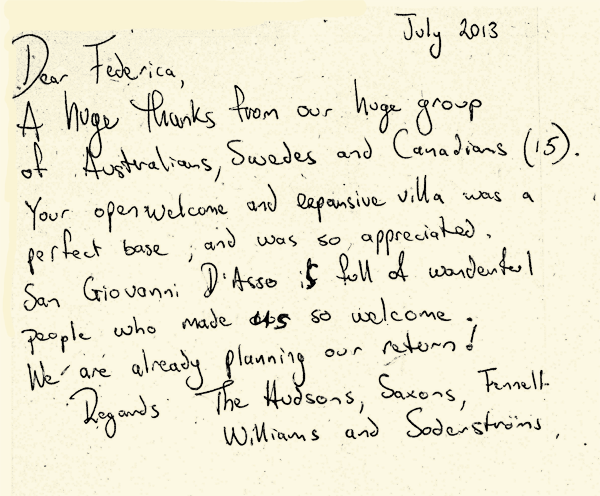 July 2013
Dear Federica,
A huge thanks from our huge group
of Australians, Swedes and Canadians (15).
Your open welcome and expansive villa was a
perfect base, and was so appreciated.
San Giovanni D'Asso is full of wonderful
people who made us so welcome.
We are already planning our return!
Regards The Hudsons, Saxons, Fennell-
Williams and Soderstroms,